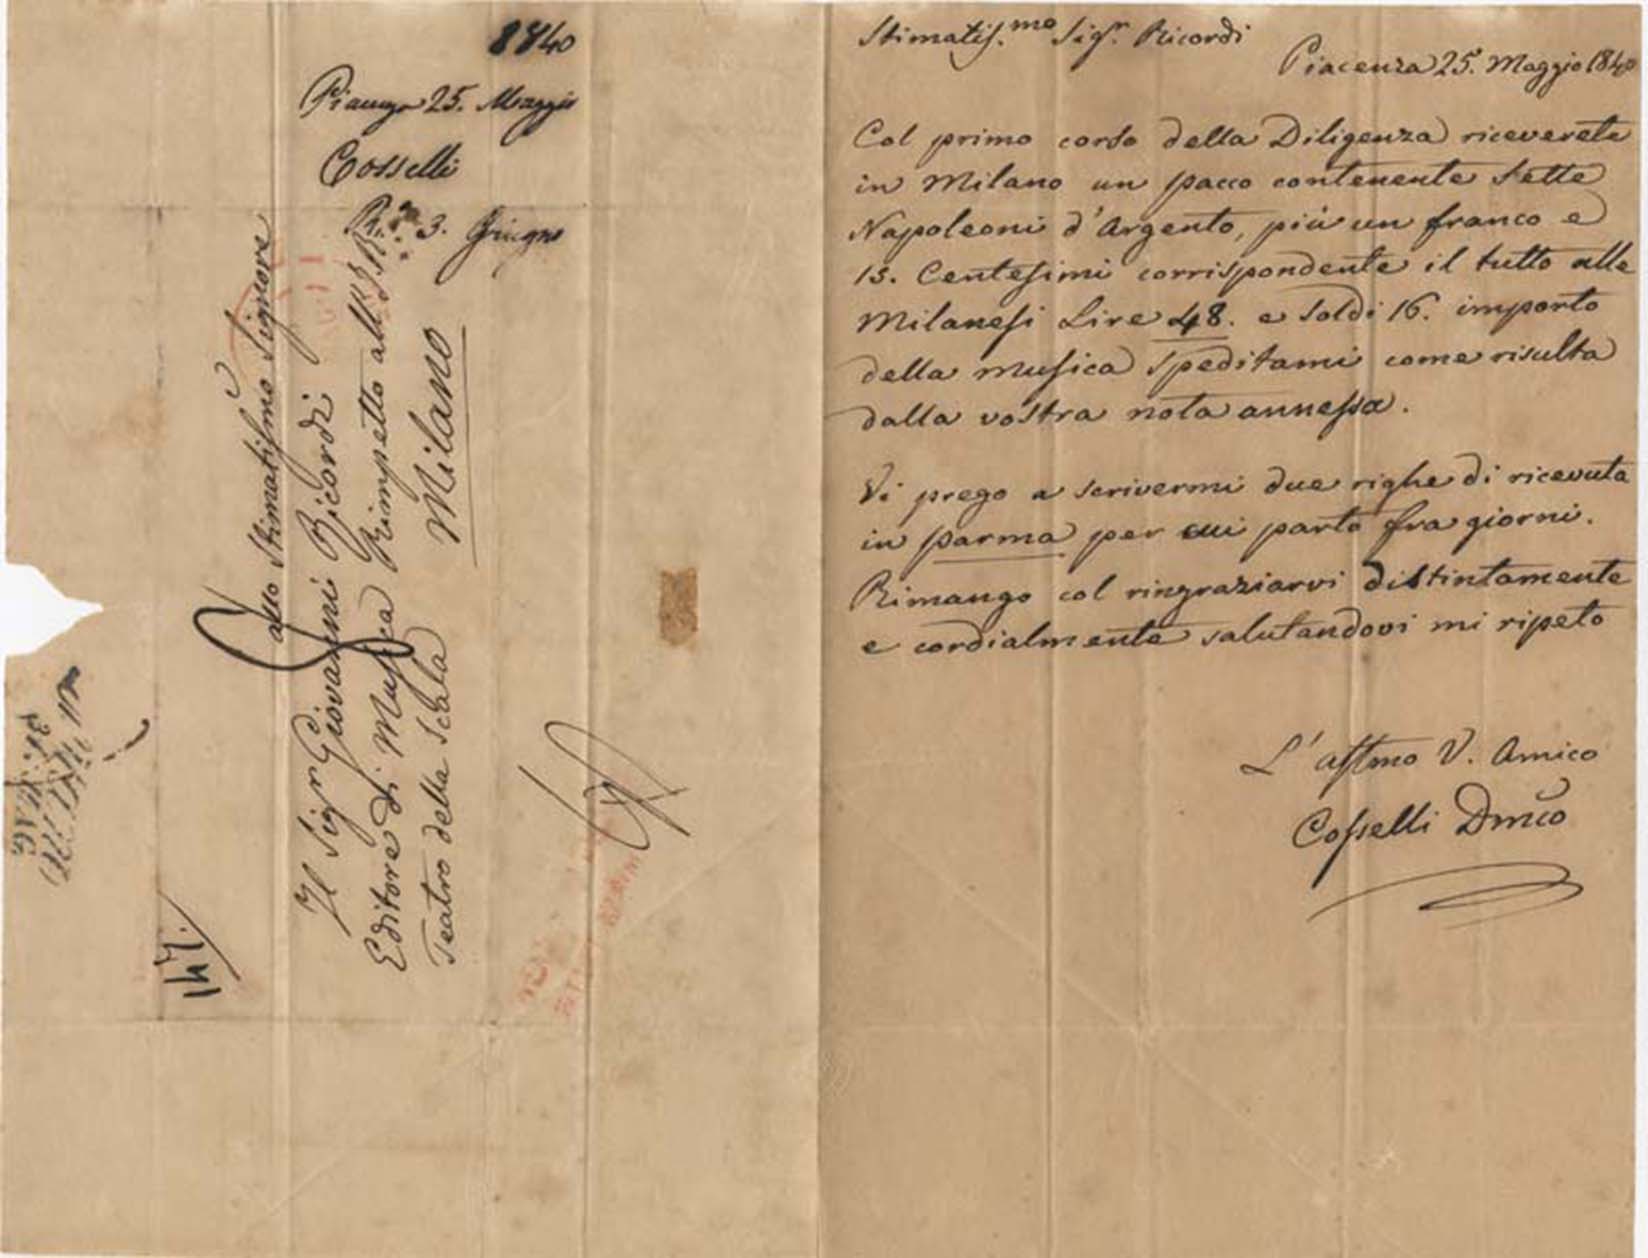 1840
Piacenza 25. Maggio
Cosselli
R.ta 3. Giugno
Allo Stimatissimo Signore
Il Sigr Giovanni Ricordi
Editore di Musica Rimpetto all' I. R.
Teatro della Scala Milano
147.
Stimatis.mo Sigr. Ricordi
Piacenza 25. Maggio 1840
Col primo corso della Diligenza riceverete
in Milano un pacco contenente Sette
Napoleoni d'Argento, più un franco e
15. Centesimi corrispondente il tutto alle
Milanesi Lire 48. e Soldi 16. importo
della musica Speditami come risulta
dalla vostra nota annessa.
Vi prego a scrivermi due righe di ricevuta
in Parma per cui parto fra giorni.
Rimango col ringraziarvi distintamente
e cordialmente salutandovi mi ripeto
L'affmo V. Amico
Cosselli Dmco